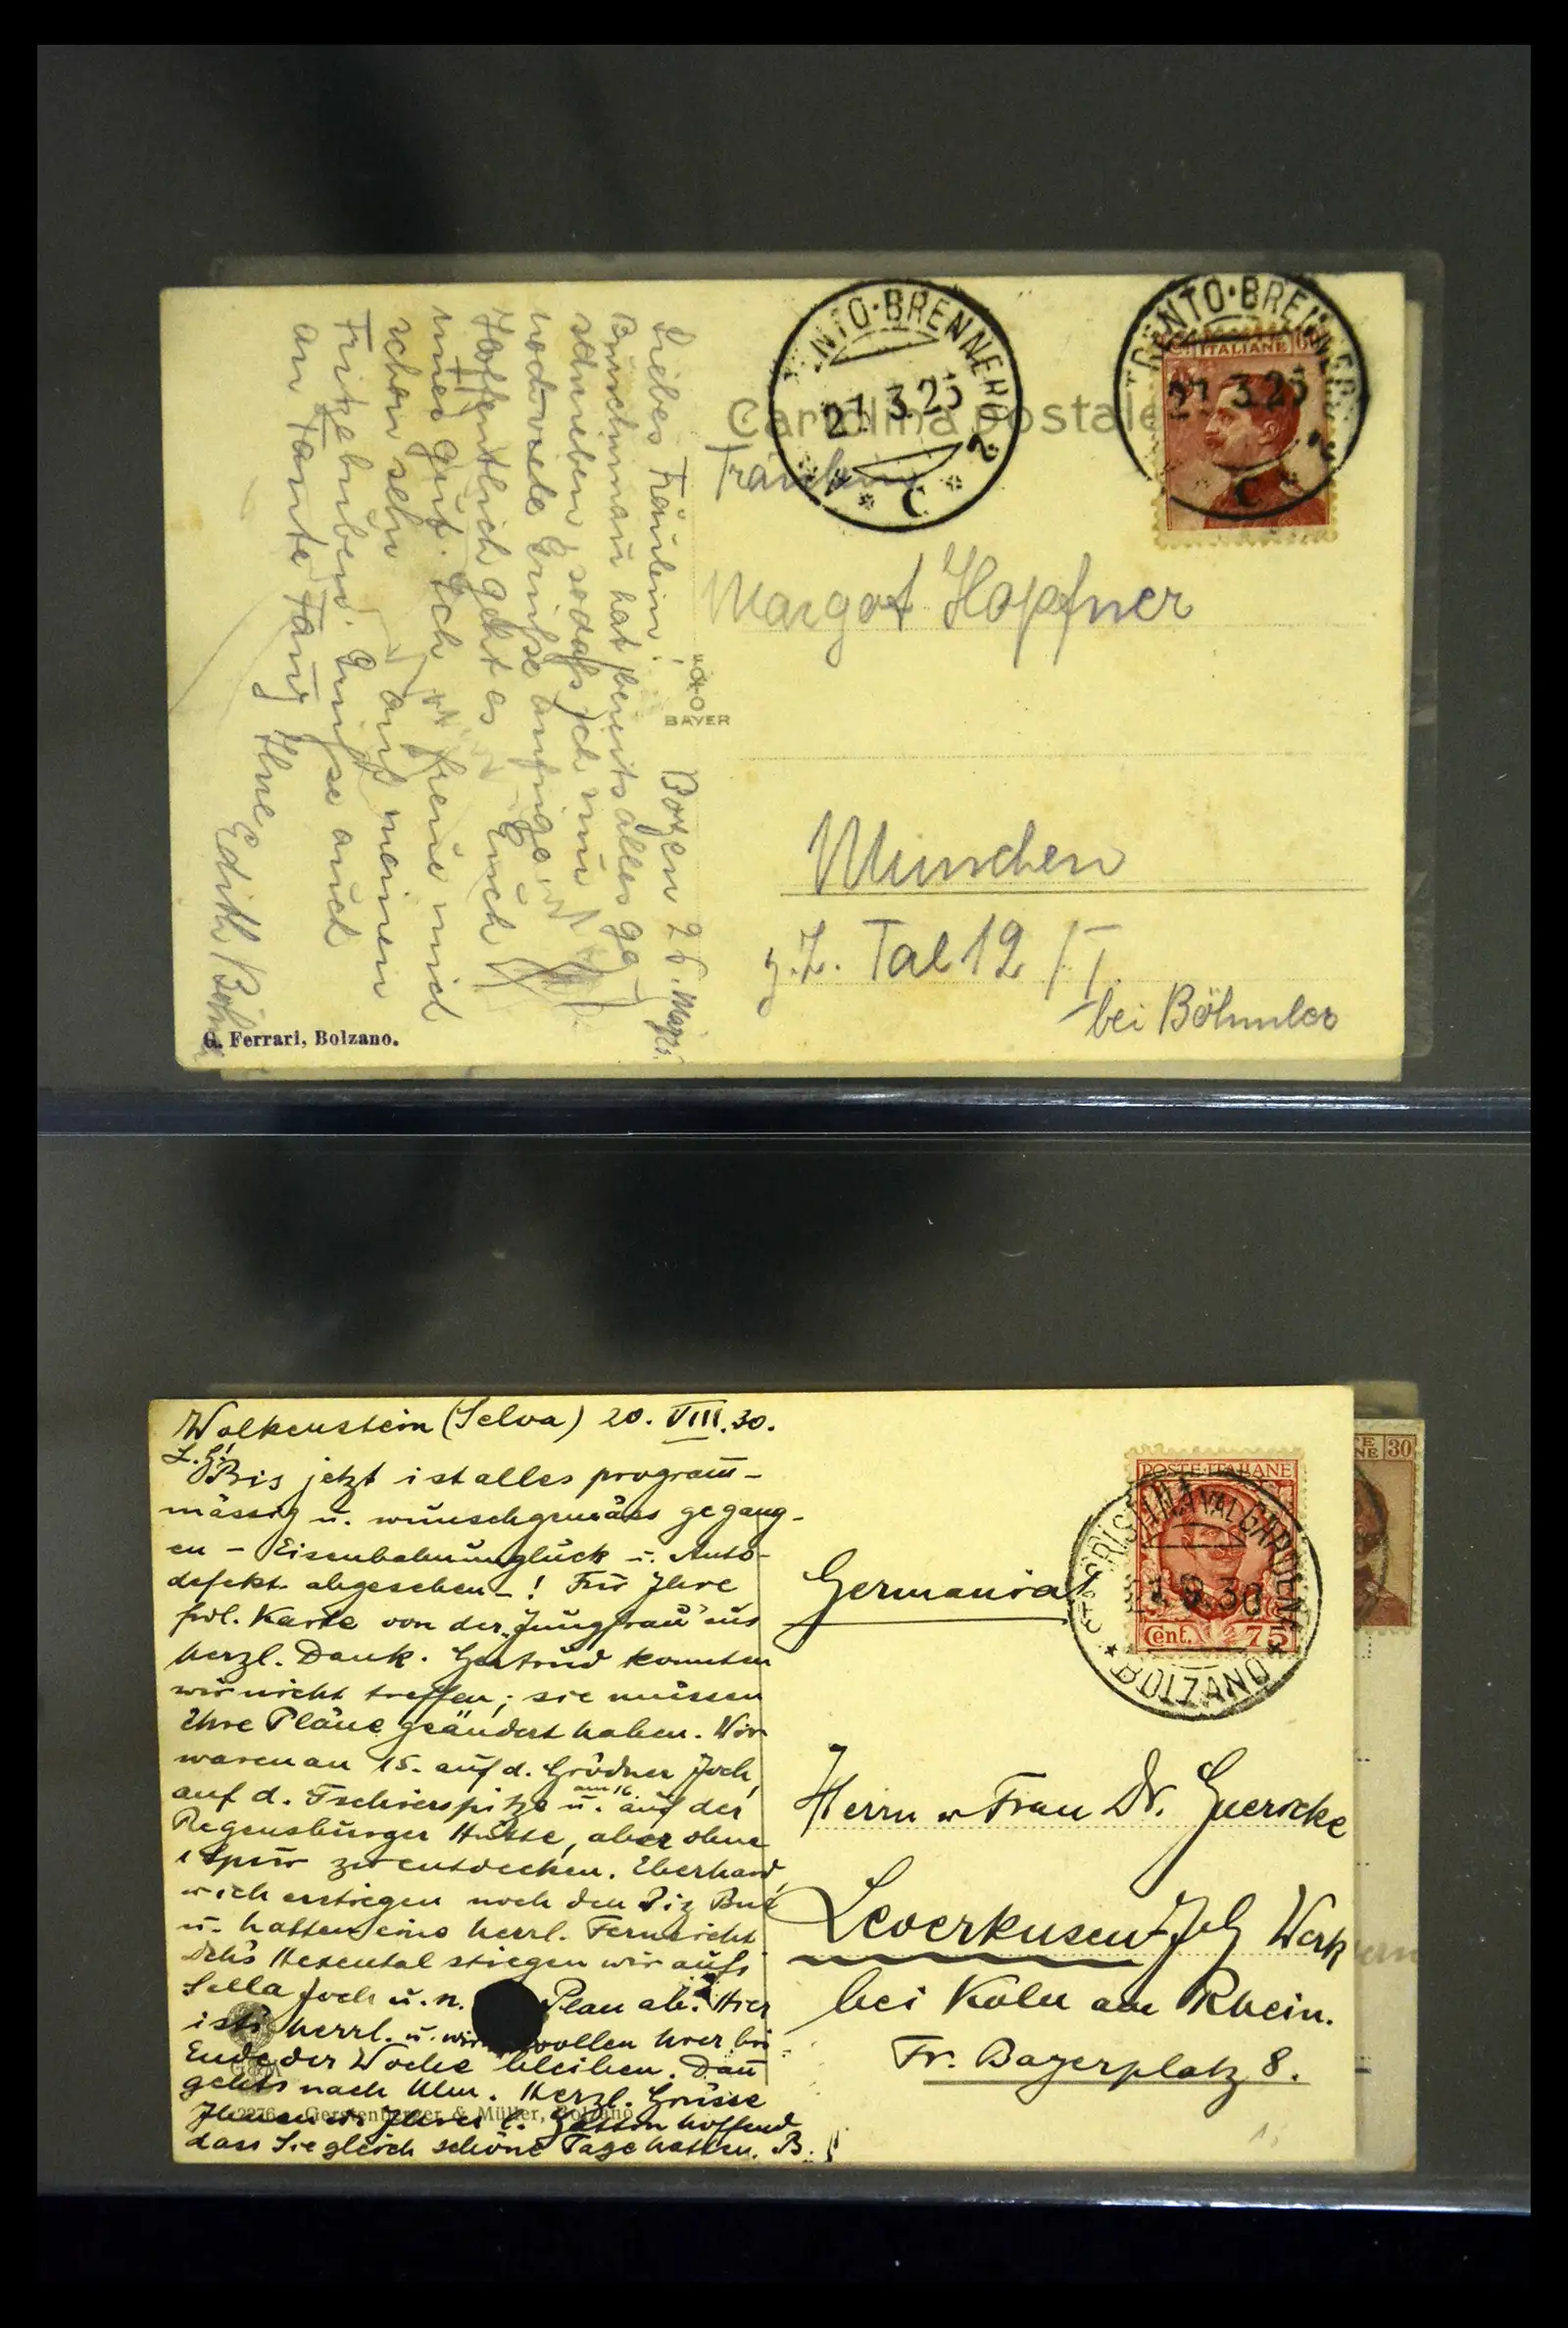 TRENTO·BRENNERO 2
27.3.25
* C *
TRENTO·BRENNERO 2
27.3.25
* C *
ITALIANE 60
Cartolina postale
Fräulein
Margot Hopfner
München
z. Z. Tal 12 / I.
bei Böhmler
BAYER
Bozen 26. März 25.
Liebes Fräulein!
Buschmann hat bereits alles ge-
schrieben sodass ich nur
noch viele Grüsse anfüge.
Hoffentlich geht es Euch
immer gut. Ich freue mich
schon sehr auf meinen
Fritzebuben. Grüsse auch
an Tante Fanny Ihre
Edith
G. Ferrari, Bolzano.
Wolkenstein (Selva) 20. VIII. 30.
L. G!
Bis jetzt ist alles programm-
mässig u. wunschgemäss gegang-
en – Eisenbahnunglück u. Auto-
defekt abgesehen –! Für Ihre
frdl. Karte von der "Jungfrau" aus
herzl. Dank. Gertrud konnten
wir nicht treffen; sie müssen
Ihre Pläne geändert haben. Wir
waren am 15. auf d. Grödner Joch,
auf d. Tschierspitze u. am 16. auf der
Regensburger Hütte, aber ohne
1 Spur zu entdecken. Eberhard
u ich erstiegen noch den Piz Boé
u. hatten eine herrl. Fernsicht
Dch's Hexental stiegen wir aufs
Sella Joch u. n. Plan ab. Hier
ists herrl. u. wir wollen hier bis
Ende der Woche bleiben. Dann
gehts nach Ulm. Herzl. Grüsse
Ihnen u. Ihrer l. Gattin hoffend
dass Sie gleich schöne Tage hatten. B.
2276 Gerstenberger & Müller, Bolzano
POSTE·ITALIANE
Cent. 75
S. CRISTINA VALGARDENA
21.8.30
* BOLZANO *
NE 30
Germania
Herrn u Frau Dr. Guericke
Leverkusen-JG Werk
bei Köln am Rhein.
Fr. Bayerplatz 8.